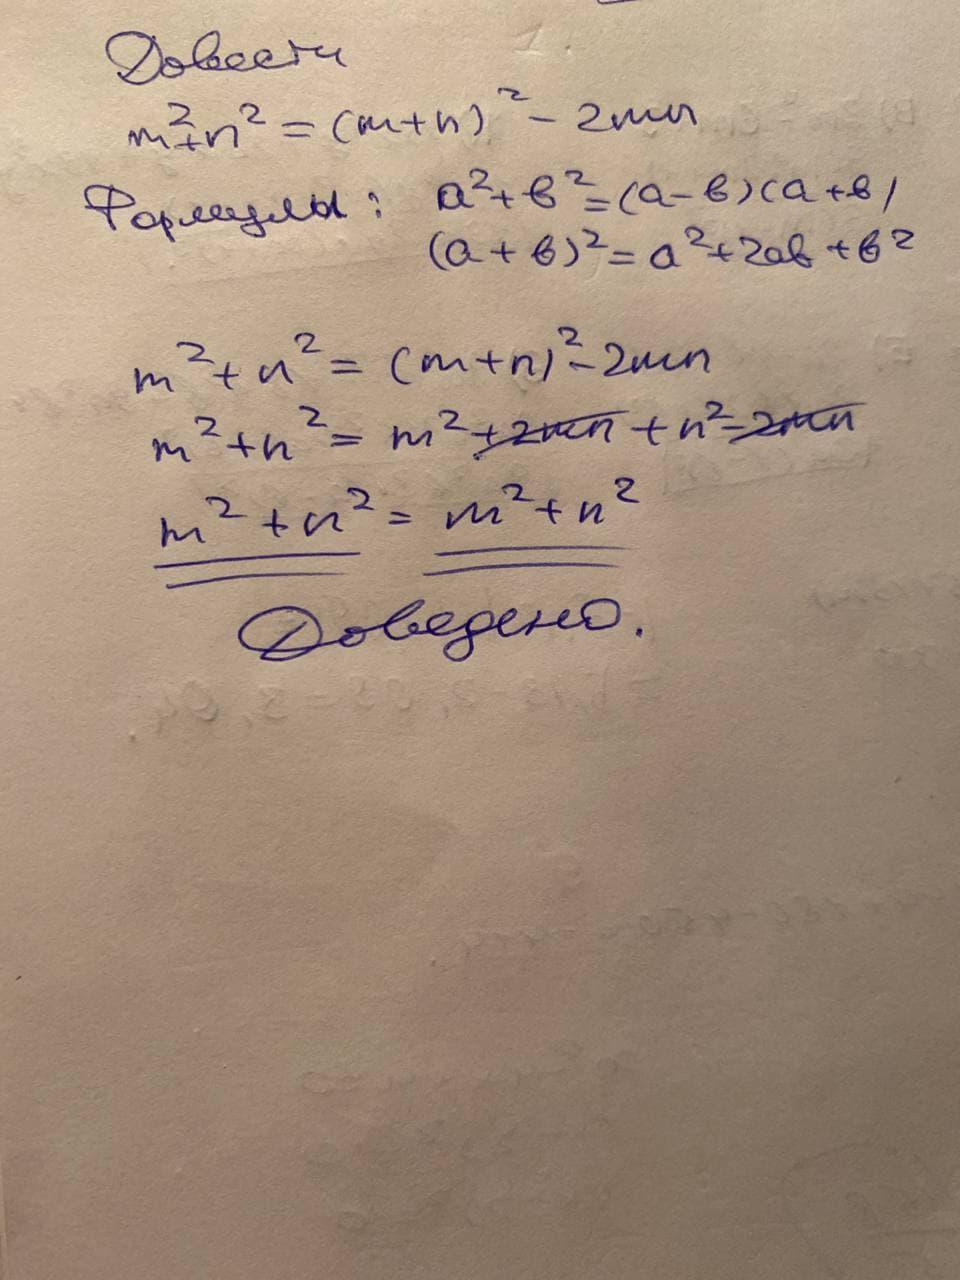 Довести
m²+n² = (m+n)² - 2mn
Формулы: a²+b²=(a-b)(a+b)
(a+b)²=a²+2ab+b²
m²+n² = (m+n)²-2mn
m²+n² = m²+2mn+n²-2mn
m²+n² = m²+n²
Доведено.